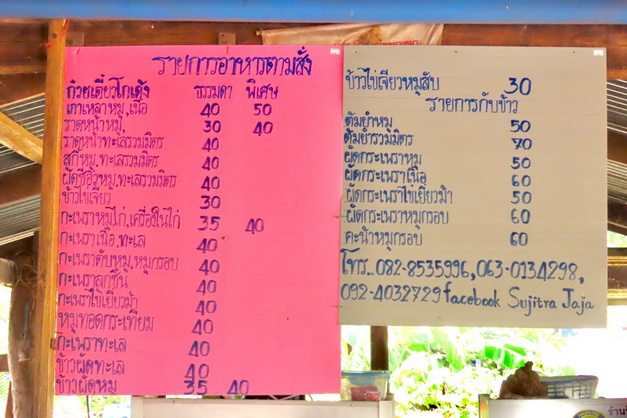 รายการอาหารตามสั่ง
ก๋วยเตี๋ยวโกเด้ง ธรรมดา พิเศษ
เกาเหลาหมู,เนื้อ 40 50
ราดหน้าหมู, 30 40
ราดหน้าทะเลรวมมิตร 40
สุกี้หมู,ทะเลรวมมิตร 40
ผัดซีอิ๊วหมู,ทะเลรวมมิตร 40
ข้าวไข่เจียว 30
กะเพราหมูไก่,เครื่องในไก่ 35 40
กะเพราเนื้อ,ทะเล 40
กะเพราตับหมู,หมูกรอบ 40
กะเพราลูกชิ้น 40
กะเพราไข่เยี่ยวม้า 40
หมูทอดกระเทียม 40
กะเพราทะเล 40
ข้าวผัดทะเล 40
ข้าวผัดหมู 35 40
ข้าวไข่เจียวหมูสับ 30
รายการกับข้าว
ต้มยำหมู 50
ต้มยำรวมมิตร 70
ผัดกระเพราหมู 50
ผัดกระเพราเนื้อ 60
ผัดกระเพราไข่เยี่ยวม้า 50
ผัดกระเพราหมูกรอบ 60
คะน้าหมูกรอบ 60
โทร...082-8535996,063-0134298,
092-4032729 facebook Sujitra Jaja